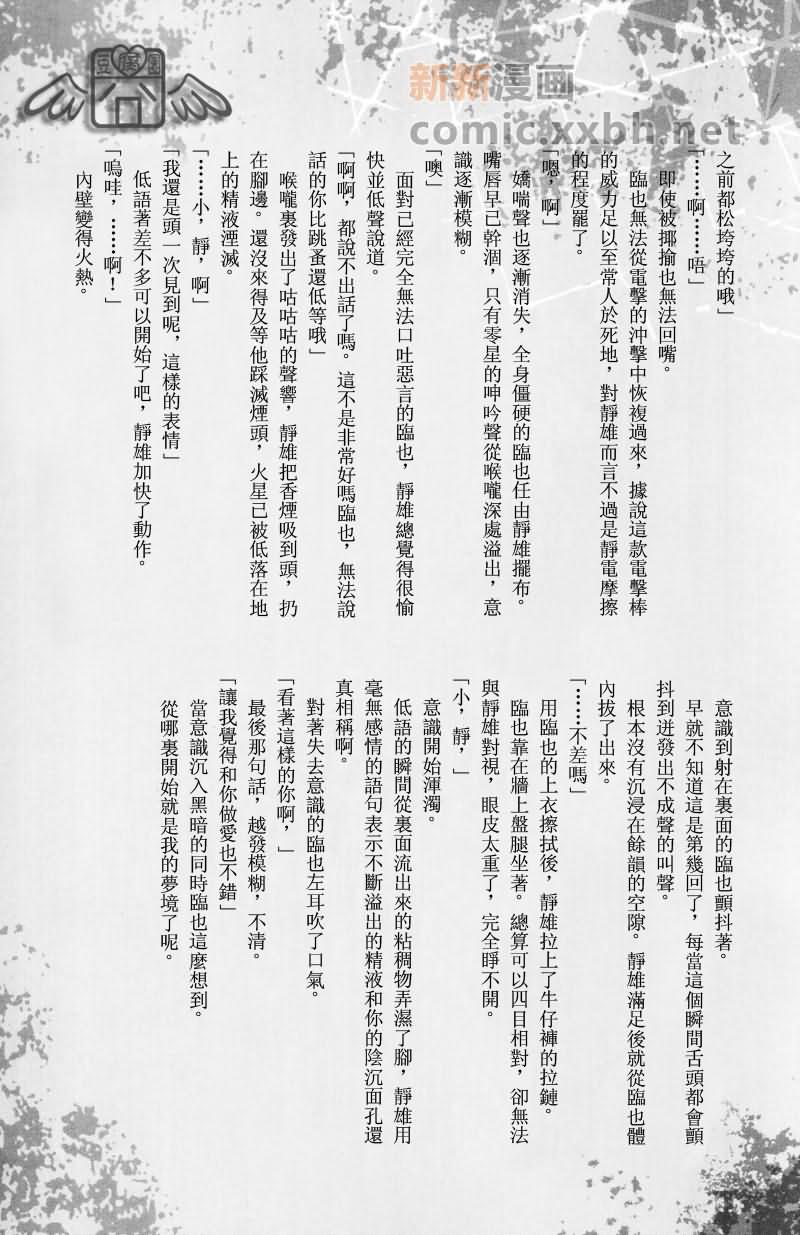 豆腐園
新新漫画
comic.xxbh.net
之前都松垮垮的哦」
「……啊……唔」
即使被揶揄也無法回嘴。
臨也無法從電擊的沖擊中恢複過來，據說這款電擊棒
的威力足以至常人於死地，對靜雄而言不過是靜電摩擦
的程度罷了。
「嗯，啊」
嬌喘聲也逐漸消失，全身僵硬的臨也任由靜雄擺布。
嘴唇早已幹涸，只有零星的呻吟聲從喉嚨深處溢出，意
識逐漸模糊。
「噢」
面對已經完全無法口吐惡言的臨也，靜雄總覺得很愉
快並低聲說道。
「啊啊，都說不出話了嗎。這不是非常好嗎臨也，無法說
話的你比跳蚤還低等哦」
喉嚨裏發出了咕咕咕的聲響，靜雄把香煙吸到頭，扔
在腳邊。還沒來得及等他踩滅煙頭，火星已被低落在地
上的精液湮滅。
「……小，靜，啊」
「我還是頭一次見到呢，這樣的表情」
低語著差不多可以開始了吧，靜雄加快了動作。
「嗚哇，……啊！」
內壁變得火熱。
意識到射在裏面的臨也顫抖著。
早就不知道這是第幾回了，每當這個瞬間舌頭都會顫
抖到迸發出不成聲的叫聲。
根本沒有沉浸在餘韻的空隙。靜雄滿足後就從臨也體
內拔了出來。
「……不差嗎」
用臨也的上衣擦拭後，靜雄拉上了牛仔褲的拉鏈。
臨也靠在牆上盤腿坐著。總算可以四目相對，卻無法
與靜雄對視，眼皮太重了，完全睜不開。
「小，靜，」
意識開始渾濁。
低語的瞬間從裏面流出來的粘稠物弄濕了腳，靜雄用
毫無感情的語句表示不斷溢出的精液和你的陰沉面孔還
真相稱啊。
對著失去意識的臨也左耳吹了口氣。
「看著這樣的你啊，」
最後那句話，越發模糊，不清。
「讓我覺得和你做愛也不錯」
當意識沉入黑暗的同時臨也這麼想到。
從哪裏開始就是我的夢境了呢。